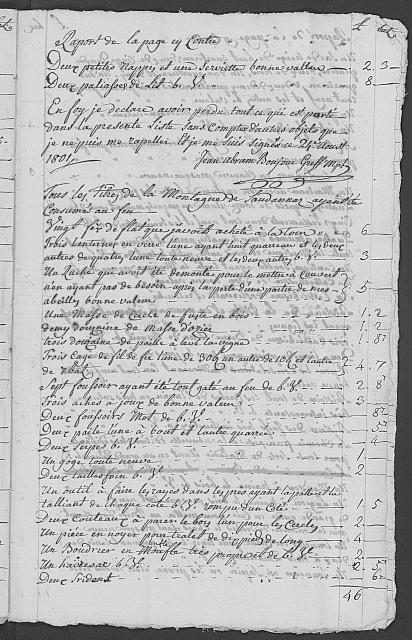 Raport de la page cy Contre
Deux petites Nappes et une Serviette bonne valleur 2. 3
Deux paliasses de Lit b. V. 8
En foy je declare avoir perdu tout ce qui est porté
dans la presente Liste Sans Compter d'autres objets que
je ne puis me rapeller Et je me suis Signés ce 24 Aoust
1801. Jean Abram Bonjour
Tous les Titres de la Montagne de ayant été
Consumés au feu
Vingt fer de plat que j'avois acheté à la 6
Trois Lenternes en verre l'une ayant huit quarreau et les deux
autres de quatre, l'une toute neuve et les deux autres b. V. 3
Un Ruche qui avoit été demonté pour le mettre à Couvert
n'en ayant pas de besoin après la perte d'une partie de mes 5
abeilles bonne valeur
Une Masse de Cercle de en bois 1. 2
demy douzaine de Masse d'ozier 1. 2
trois douzaine de paille à leur la vigne 1. 8
Trois Cage de fil de fer l'une de 30 un autre de 10 et l'autre
de 7 4. 7
Sept foussoir ayant été tout gaté au feu de b. V. 2 8
Trois aches à deux de bonne valeur 3
Deux foussoirs de b. V. 8
Deux paile l'une à bout et l'autre quarrée 5
Deux Serpes b. V. 4
Un goge toute neuve 1
Deux tailles foin b. V. 2
Un outil à faire les rayes dans les prés ayant la palle et le
talliens de chaque coté b. V. rompu d'un Coté 1 5
Deux Couteaux à parer le bois l'un pour les Cercles 2
Un piece en noyer pour de dix pieds de long 4
Un Boudrier en très propre et de b. V. 2
Un havresac b. V. 5
Deux Trident 6
46